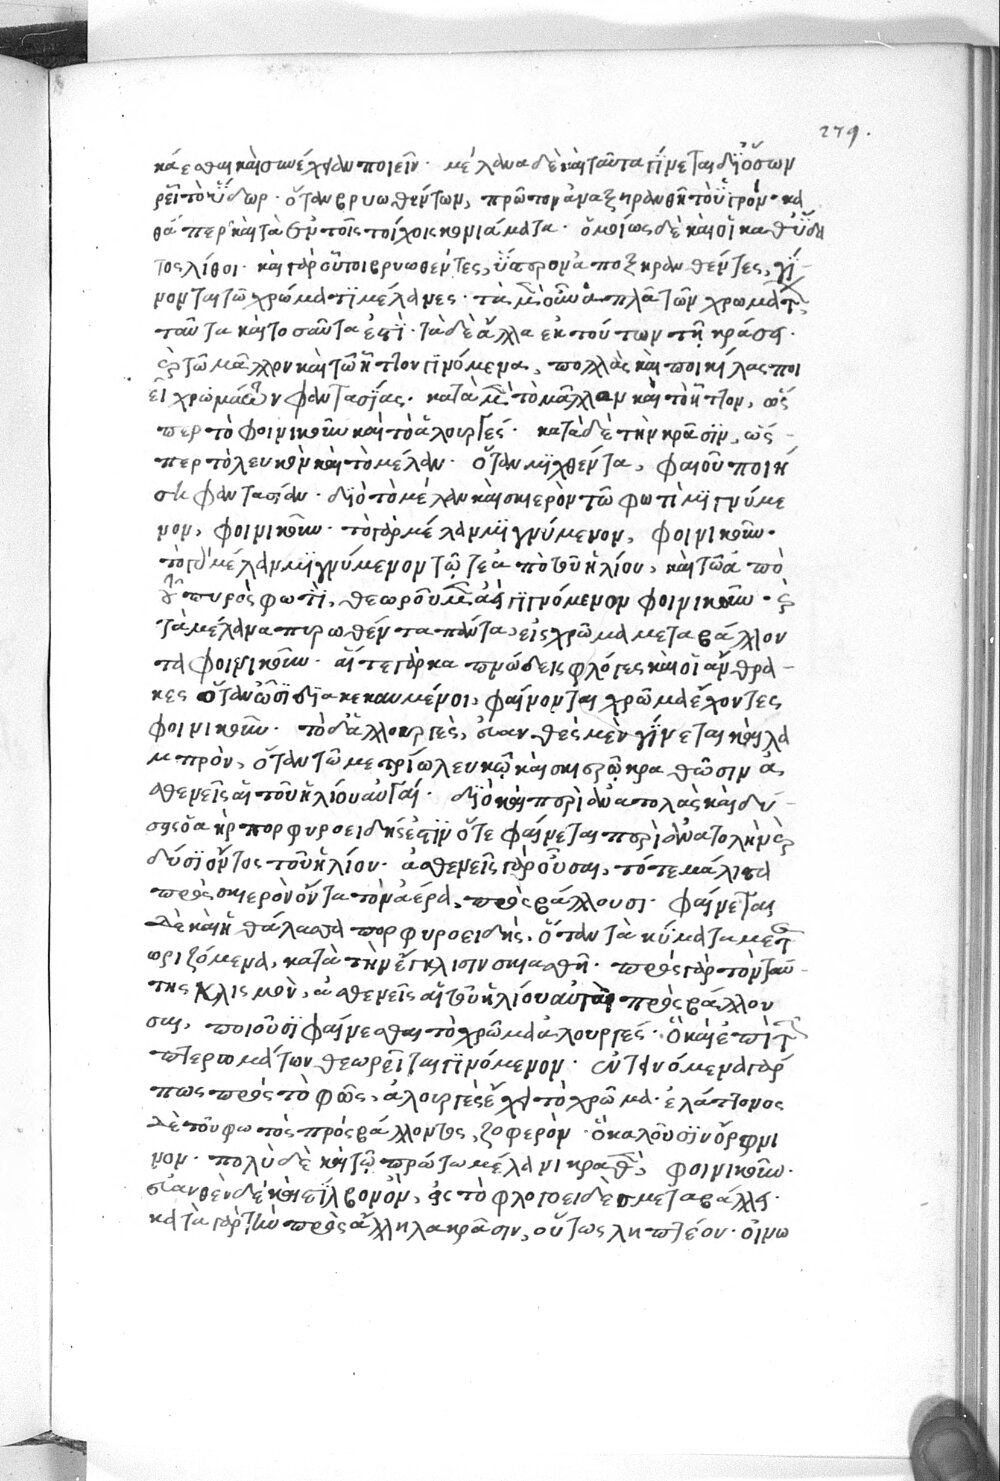 279.
κάεσθαι καὶ συνέχειαν ποιεῖν· μέλανα δὲ καὶ ταῦτα γίνεται δι' ὅσων
ῥεῖ τὸ ὕδωρ· ὅταν βρυωθέντων, πρῶτον ἀναξηρανθῆ τὸ ὑγρόν· κα
θάπερ καὶ τὰ ἐν τοῖς τοίχοις κονιάματα· ὁμοίως δὲ καὶ οἱ καθ' ὕδα
τος λίθοι· καὶ γὰρ οὗτοι βρυωθέντες, ὕστερον ἀποξηρανθέντες, γί-
νονται τῶ χρώματι μέλανες· τὰ μὲν οὖν ἁπλᾶ τῶν χρωμάτων
ταῦτα καὶ τοσαῦτα ἐστὶ· τὰ δὲ ἄλλα ἐκ τούτων τῇ κράσει·
καὶ τῶ μᾶλλον καὶ τῶ ἧττον γινόμενα, πολλὰς καὶ ποικίλας ποι
εῖ χρωμάτων φαντασίας· κατὰ μὲν τὸ μᾶλλον καὶ τὸ ἧττον, ὥσ
περ τὸ φοινικοῦν καὶ τὸ ἁλουργές· κατὰ δὲ τὴν κρᾶσιν, ὥσ-
περ τὸ λευκὸν καὶ τὸ μέλαν· ὅταν μιχθέντα, φαιοῦ ποιή
ση φαντασίαν· διὸ τὸ μέλαν καὶ σκιερὸν τῶ φωτὶ μιγνύμε
νον, φοινικοῦν· τὸ γὰρ μέλαν μιγνύμενον, φοινικοῦν·
τὸ γὰρ μέλαν μιγνύμενον τῷ τε ἀπὸ τοῦ ἡλίου, καὶ τῶ ἀπὸ
τοῦ πυρὸς φωτὶ, θεωροῦμεν ἀεὶ γιγνόμενον φοινικοῦν· καὶ
τὰ μέλανα πυρωθέντα πάντα εἰς χρῶμα μεταβάλλον
τα φοινικοῦν· αἵ τε γὰρ καπνώδεις φλόγες καὶ οἱ ἄνθρα-
κες ὅταν ὦσι διακεκαυμένοι, φαίνονται χρῶμα ἔχοντες
φοινικοῦν· τὸ δ' ἁλλουργὲς, εὐανθὲς μὲν γίνεται καὶ λα
μπρὸν, ὅταν τῶ μετρίω λευκῷ καὶ σκιερῷ κραθῶσιν ἀ
σθενεῖς αἱ τοῦ ἡλίου αὐγαί· διὸ καὶ περὶ ἀνατολὰς καὶ δύ-
σεις ὁ ἀὴρ πορφυροειδής ἐστιν ὅτε φαίνεται περὶ ἀνατολὴν καὶ
δύσιν ὄντος τοῦ ἡλίου· ἀσθενεῖς γὰρ οὖσαι, τότε μάλιστα
πρὸς σκιερὸν ὄντα τὸν ἀέρα, προσβάλλουσι· φαίνεται
δὲ καὶ ἡ θάλασσα πορφυροειδὴς, ὅταν τὰ κύματα μετε
ωριζόμενα, κατὰ τὴν ἔγκλισιν σκιασθῆ· πρὸς γὰρ τὸν ταύ-
της κλισμὸν, ἀσθενεῖς αἱ τοῦ ἡλίου αὐγαὶ προσβάλλου
σαι, ποιοῦσι φαίνεσθαι τὸ χρῶμα ἁλουργές· ὃ καὶ ἐπὶ τῶν
πτερωμάτων θεωρεῖται γινόμενον· ἐκτεινόμενα γάρ
πως πρὸς τὸ φῶς, ἁλουργὲς ἔχει τὸ χρῶμα· ἐλάττονος
δὲ τοῦ φωτὸς προσβάλλοντος, ζοφερὸν· ὃ καλοῦσιν ὄρφνι
νον· πολὺ δὲ καὶ τῷ πρώτω μέλανι κραθὲν, φοινικοῦν·
εὐανθὲν δὲ καὶ στίλβον ὂν, εἰς τὸ φλογοειδὲς μεταβάλλει·
κατὰ γὰρ τὴν πρὸς ἄλληλα κρᾶσιν, οὕτως ληπτέον· οἰνω